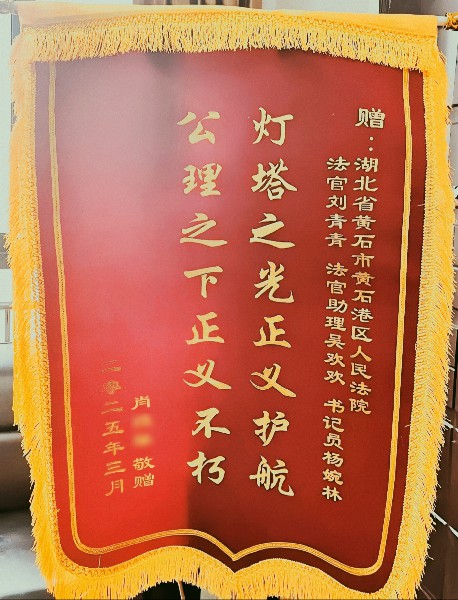 赠：湖北省黄石市黄石港区人民法院
法官刘青青 法官助理吴欢欢 书记员杨婉林
灯塔之光正义护航
公理之下正义不朽
肖 敬赠
二零二五年三月